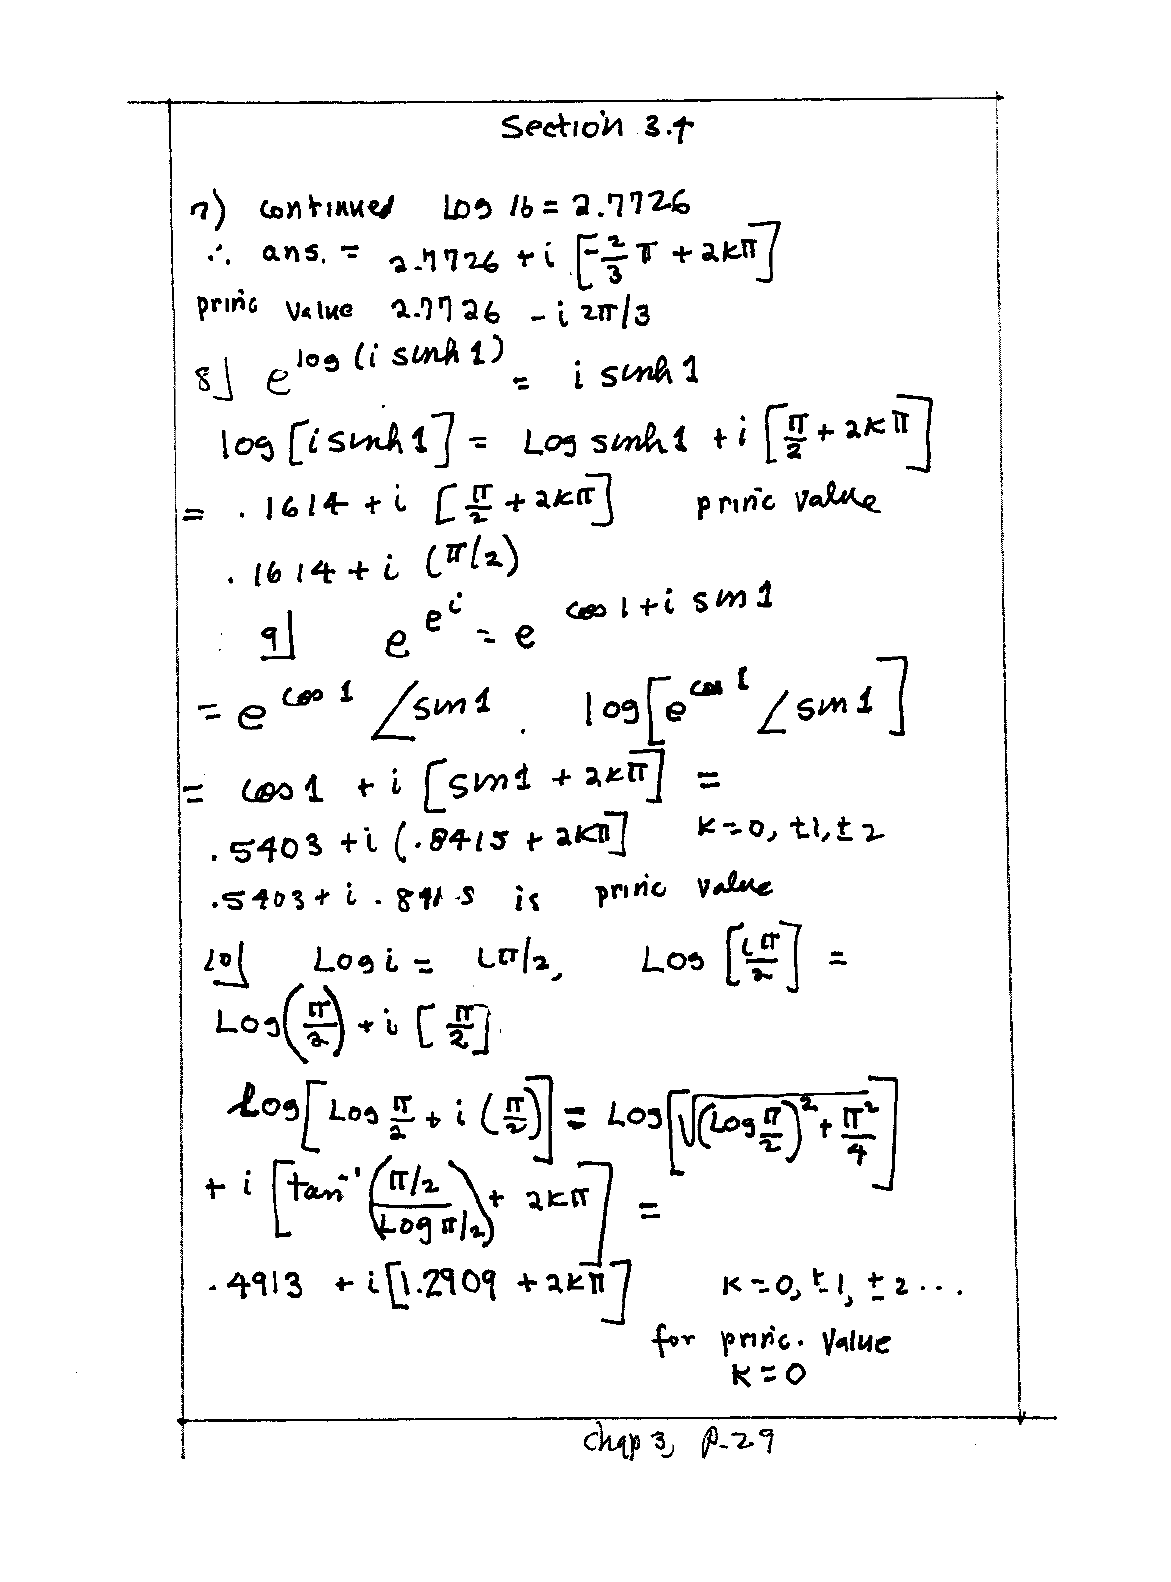 Section 3.4
7) continued Log 16 = 2.7726
∴ ans. = 2.7726 + i [-2/3 π + 2kπ]
princ value 2.7726 - i 2π/3
8] e^log (i sinh 1) = i sinh 1
log [i sinh 1] = Log sinh 1 + i [π/2 + 2kπ]
= .1614 + i [π/2 + 2kπ] princ value
.1614 + i (π/2)
9] e^e^i = e^cos 1 + i sin 1
= e^cos 1 ∠sin 1 . log[e^cos 1 ∠sin 1]
= cos 1 + i [sin 1 + 2kπ] =
.5403 + i (.8415 + 2kπ] k = 0, ±1, ± 2
.5403 + i .8415 is princ value
10] Log i = iπ/2, Log [iπ/2] =
Log(π/2) + i [π/2]
log[Log π/2 + i (π/2)] = Log[√((Log π/2)² + π²/4)]
+ i [tan⁻¹ (π/2 / Log π/2) + 2kπ] =
.4913 + i [1.2909 + 2kπ] k = 0, ±1, ± 2 ...
for princ. value
k = 0
chap 3, p-29